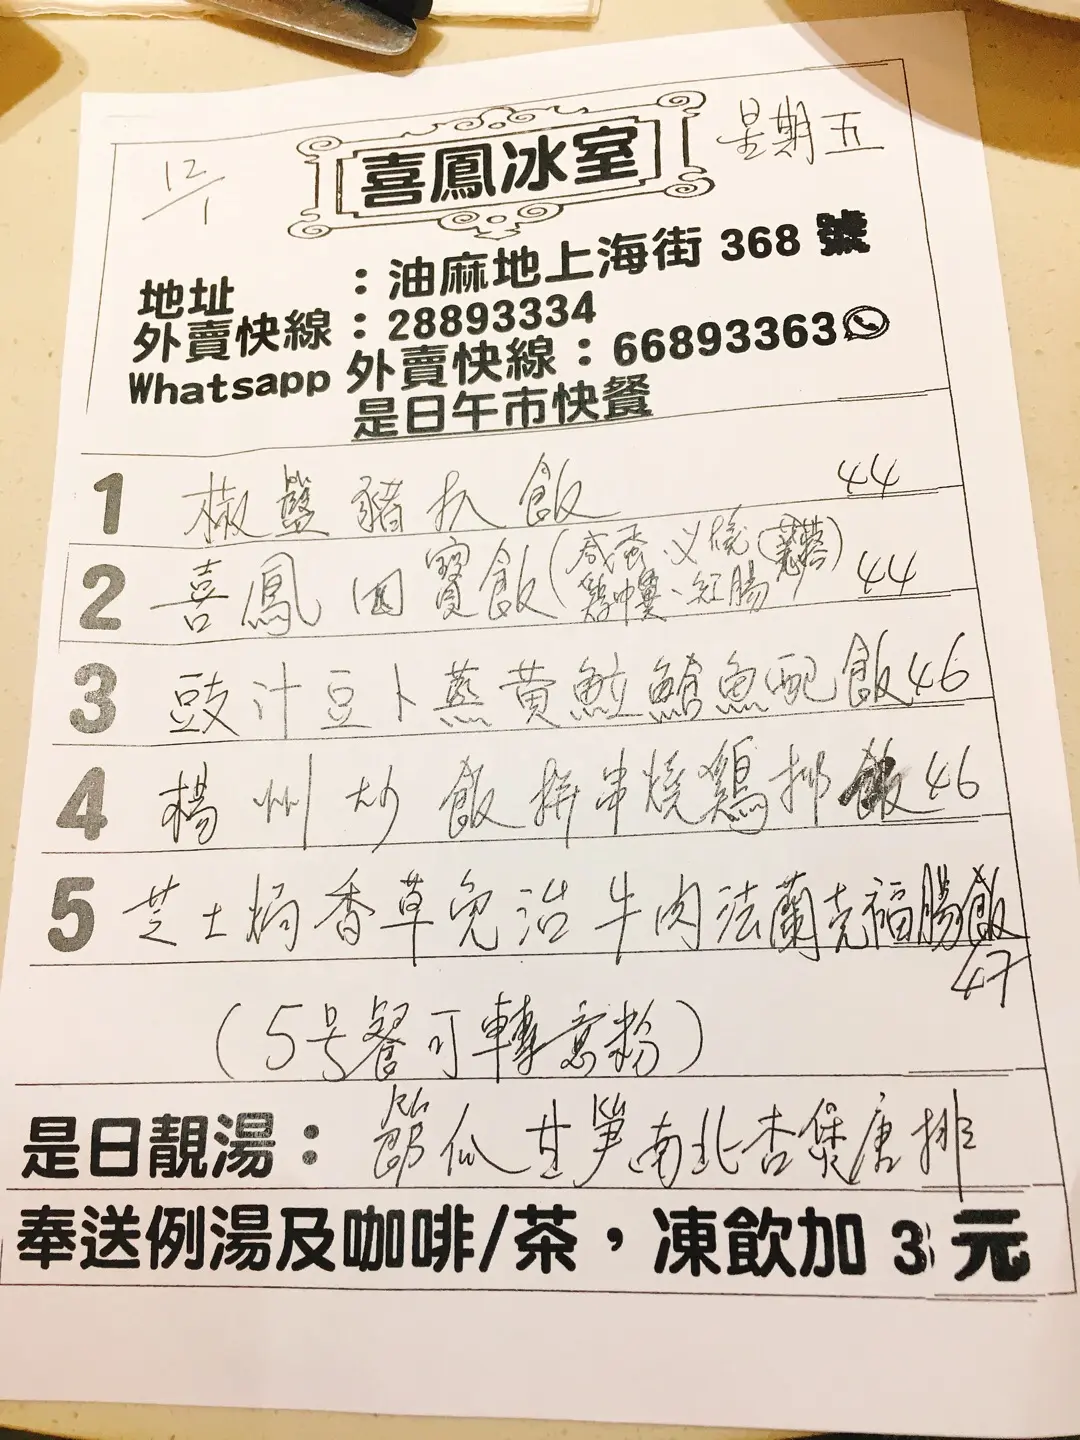 12/1
喜鳳冰室
星期五
地址 ：油麻地上海街 368 號
外賣快線：28893334
Whatsapp 外賣快線：66893363
是日午市快餐
1 椒鹽豬扒飯 44
2 喜鳳四寶飯(咸蛋 义燒 雞中翼、紅腸) 44
3 豉汁豆卜蒸黄魚立鱠魚配飯 46
4 楊州炒飯拼串燒鷄排飯 46
5 芝士焗香草免治牛肉法蘭克福腸飯 47
(5号餐可轉意粉)
是日靚湯：節瓜甘笋南北杏煲唐排
奉送例湯及咖啡/茶，凍飲加 3 元